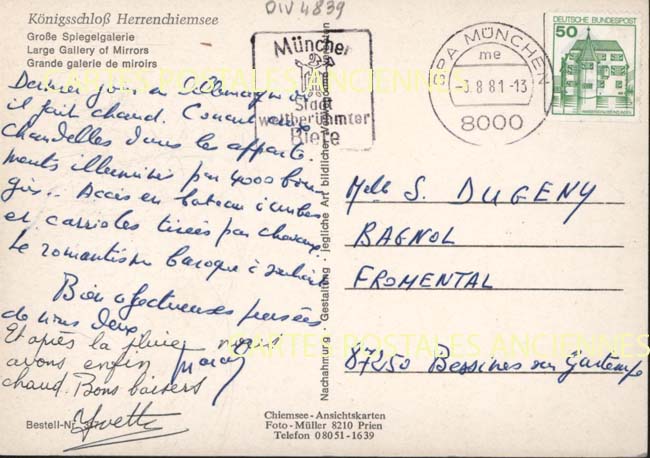 DIV 4839
Königsschloß Herrenchiemsee
Große Spiegelgalerie
Large Gallery of Mirrors
Grande galerie de miroirs
Dernier jour en Allemagne où
il fait chaud. Concert aux
chandelles dans les apparte-
ments illuminés par 4000 bou-
gies. Accès en bateau
et carrioles tirées par chevaux.
Le romantisme baroque à souhait
Bien affectueuses pensées
de nous deux
Et après la pluie nous
avons enfin
chaud. Bons baisers
Yvette
Bestell-Nr.
München
Stadt
weltberühmter
Biere
BPA MÜNCHEN
me
.8.81-13
8000
DEUTSCHE BUNDESPOST
50
Nachahmung · Gestaltung · jegliche Art bildlicher
Melle S. DUGENY
BAGNOL
FROMENTAL
87250 Bessines sur Gartempe
Chiemsee-Ansichtskarten
Foto-Müller 8210 Prien
Telefon 08051-1639
CARTES POSTALES ANCIENNES
CARTES POSTALES ANCIENNES